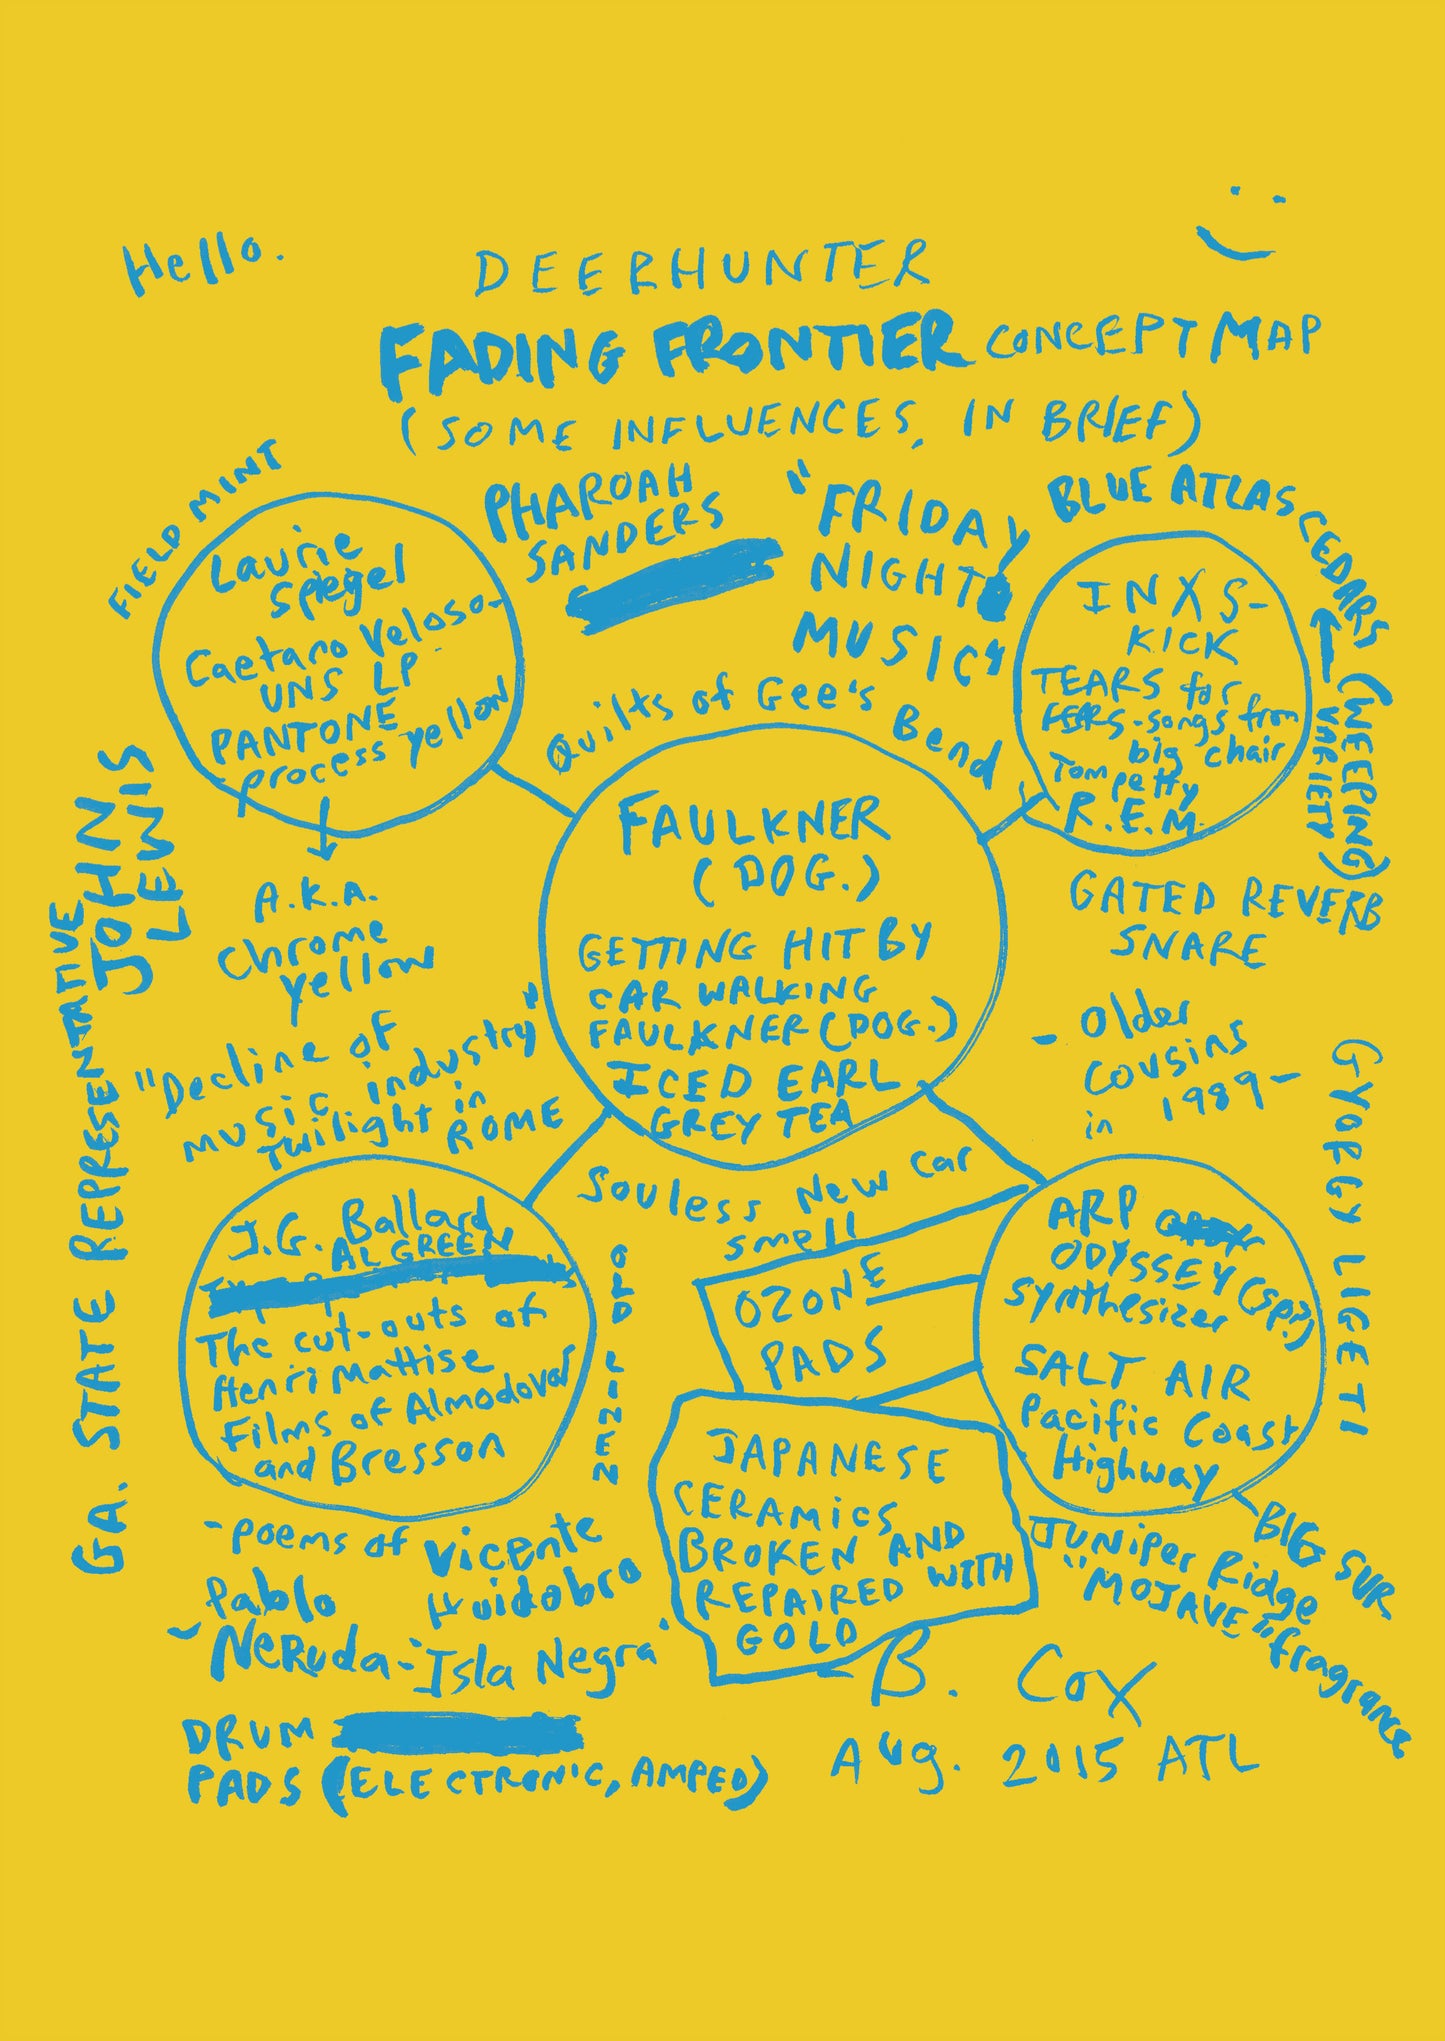 Hello.
DEERHUNTER
FADING FRONTIER CONCEPT MAP
(SOME INFLUENCES, IN BRIEF)
FIELD MINT
Laurie
Spiegel
Caetano Veloso-
UNS LP
PANTONE
process yellow
A.K.A.
Chrome
yellow
PHAROAH
SANDERS
"FRIDAY
NIGHT
MUSIC"
BLUE ATLAS CEDARS (WEEPING)
VARIETY
INXS-
KICK
TEARS for
FEARS-songs from
big chair
Tom petty
R.E.M.
Quilts of Gee's Bend
FAULKNER
(DOG.)
GETTING HIT BY
CAR WALKING
FAULKNER (DOG.)
ICED EARL
GREY TEA
GATED REVERB
SNARE
- Older
cousins
in 1989-
GYORGY LIGETI
GA. STATE REPRESENTATIVE
JOHN
LEWIS
"Decline of
music industry"
twilight in
ROME
J.G. Ballard
AL GREEN
The cut-outs of
Henri Mattise
Films of Almodovar
and Bresson
OLD LINEN
Souless New Car
smell
OZONE
PADS
ARP
ODYSSEY (sp?)
Synthesizer
SALT AIR
Pacific Coast
Highway
JAPANESE
CERAMICS
BROKEN AND
REPAIRED WITH
GOLD
BIG SUR
JUNIPER Ridge
"MOJAVE" fragrance
-poems of Vicente
Huidobro
Pablo
Neruda-'Isla Negra'
DRUM
PADS (ELECTRONIC, AMPED)
B. Cox
Aug. 2015 ATL